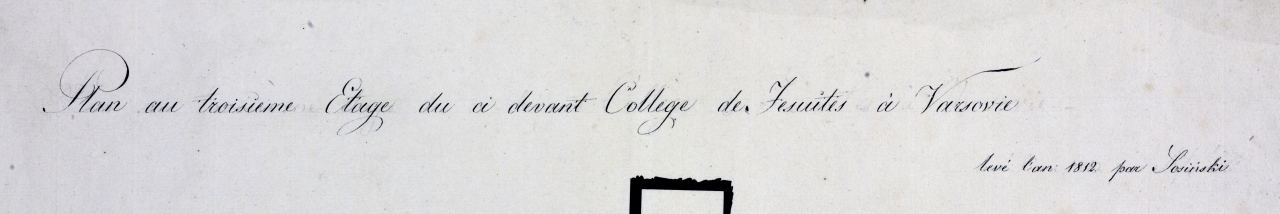 Plan au troisieme Etage du ci devant College de Jesuites à Varsovie
levé l'an 1812 par Sosiński